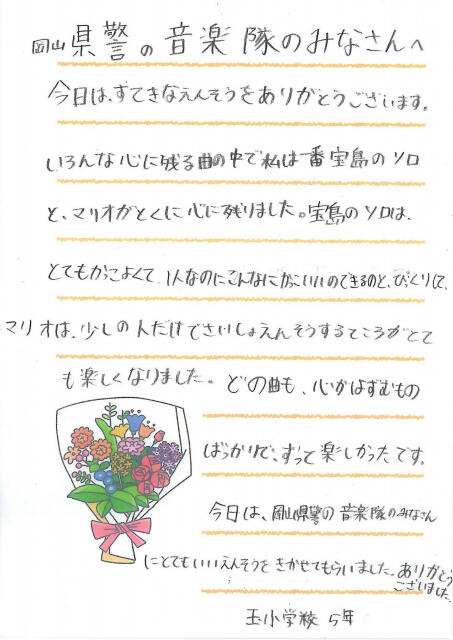 岡山県警の音楽隊のみなさんへ
今日は、すてきなえんそうをありがとうございます。
いろんな心に残る曲の中で私は一番宝島のソロ
と、マリオがとくに心に残りました。宝島のソロは、
とてもかっこよくて、1人なのにこんなにかっこいいのできるのと、びっくりして、
マリオは、少しの人だけでさいしょえんそうするところがとて
も楽しくなりました。どの曲も、心がはずむもの
ばっかりで、ずっと楽しかったです。
今日は、岡山県警の音楽隊のみなさん
にとてもいいえんそうをきかせてもらいました。ありがとう
ございました。
玉小学校 5年